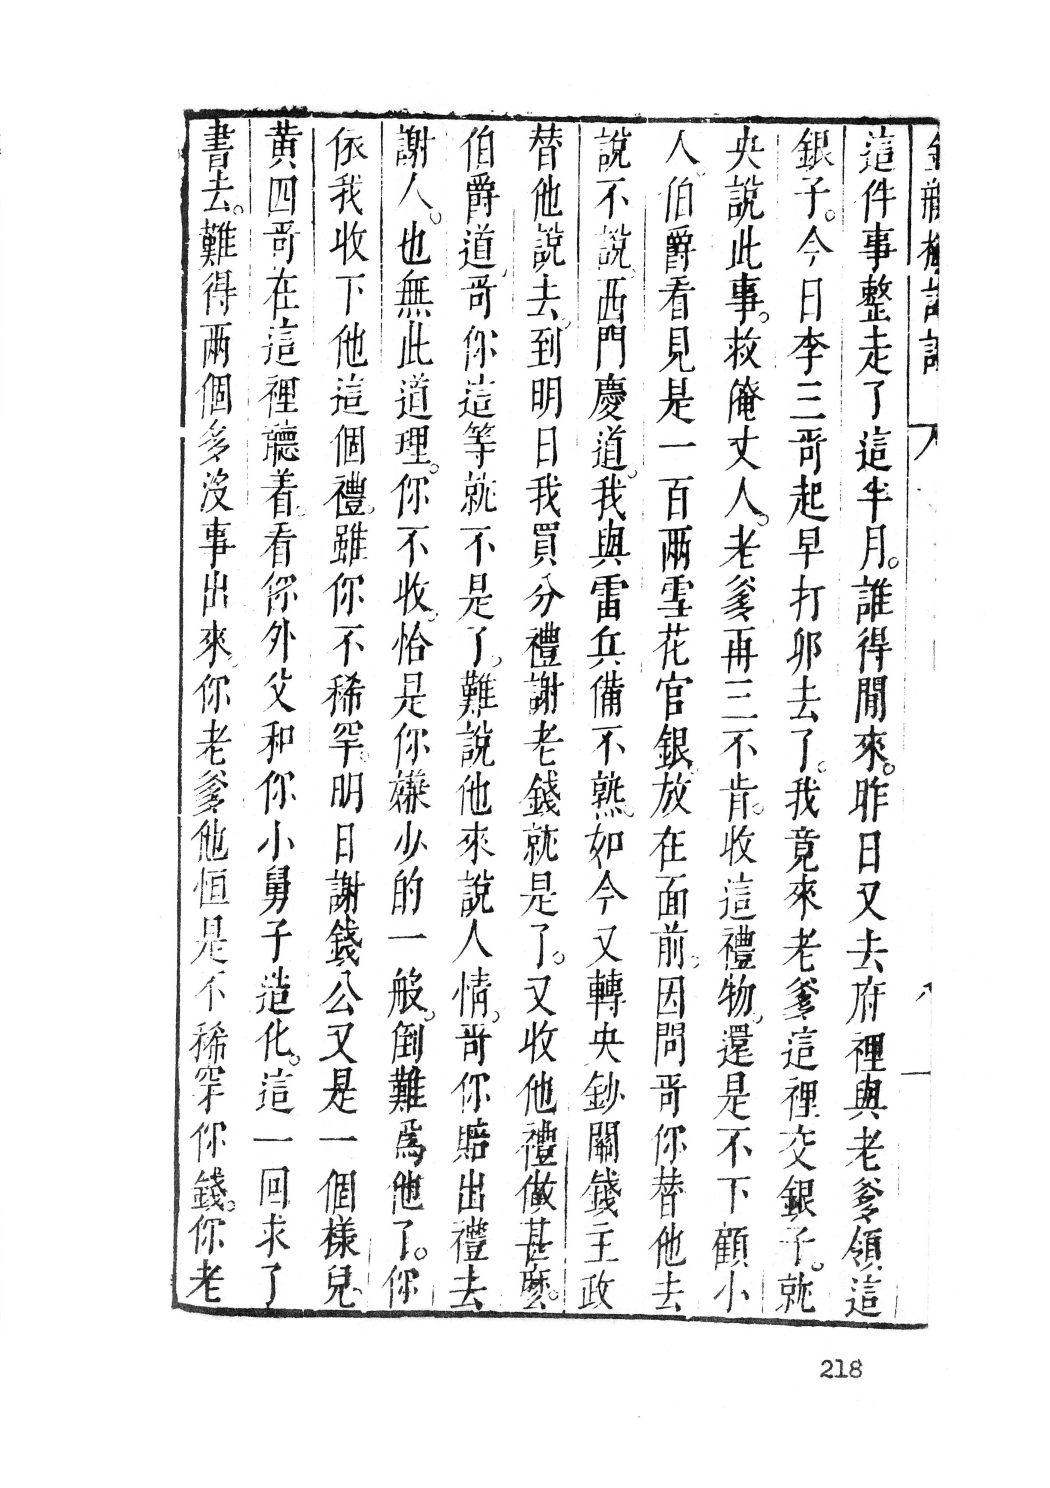 金瓶梅詞話 八
這件事整走了這半月。誰得閒來。昨日又去府裡與老爹領這
銀子。今日李三哥起早打卯去了。我竟來老爹這裡交銀子。就
央說此事。救俺丈人。老爹再三不肯。收這禮物。還是不下顧小
人。伯爵看見是一百兩雪花官銀。放在面前。因問哥你替他去
說不說。西門慶道。我與雷兵備不熟。如今又轉央鈔關錢主政
替他說去。到明日我買分禮謝老錢就是了。又收他禮做甚麼。
伯爵道。哥你這等就不是了。難說他來說人情。哥你賠出禮去
謝人。也無此道理。你不收。恰是你嫌少的一般。倒難爲他了。你
依我收下他這個禮。雖你不稀罕。明日謝錢公又是一個樣兒。
黃四哥在這裡聽着。看你外父和你小舅子造化。這一回求了
書去。難得兩個多沒事出來。你老爹他恒是不稀罕你錢。你老
218